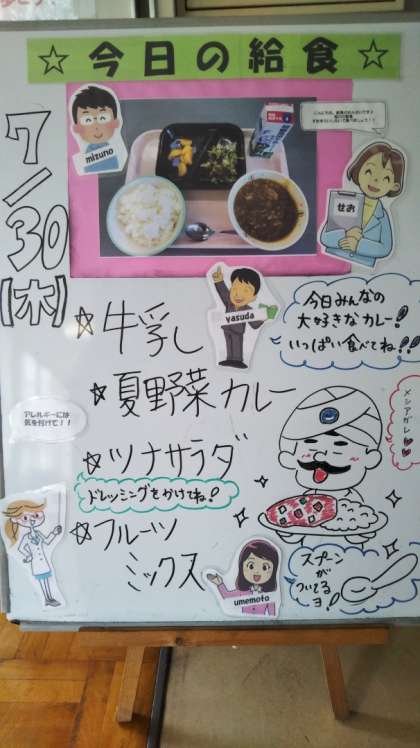 ☆今日の給食☆
7/30
【木】
mizuno
せお
yasuda
今日みんなの
大好きなカレー!
いっぱい食べてね!!
☆牛乳
☆夏野菜カレー
メシアガレ
アレルギーには
気を付けて!!
☆ツナサラダ
ドレッシングをかけてね!
☆フルーツ
ミックス
umemoto
スプーン
が
ついてる
ヨ!